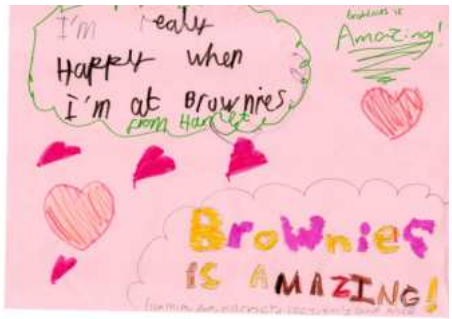 I'm realy
Happy when
I'm at Brownies
from
brownies is
Amazing!
Brownies
is AMAZING!